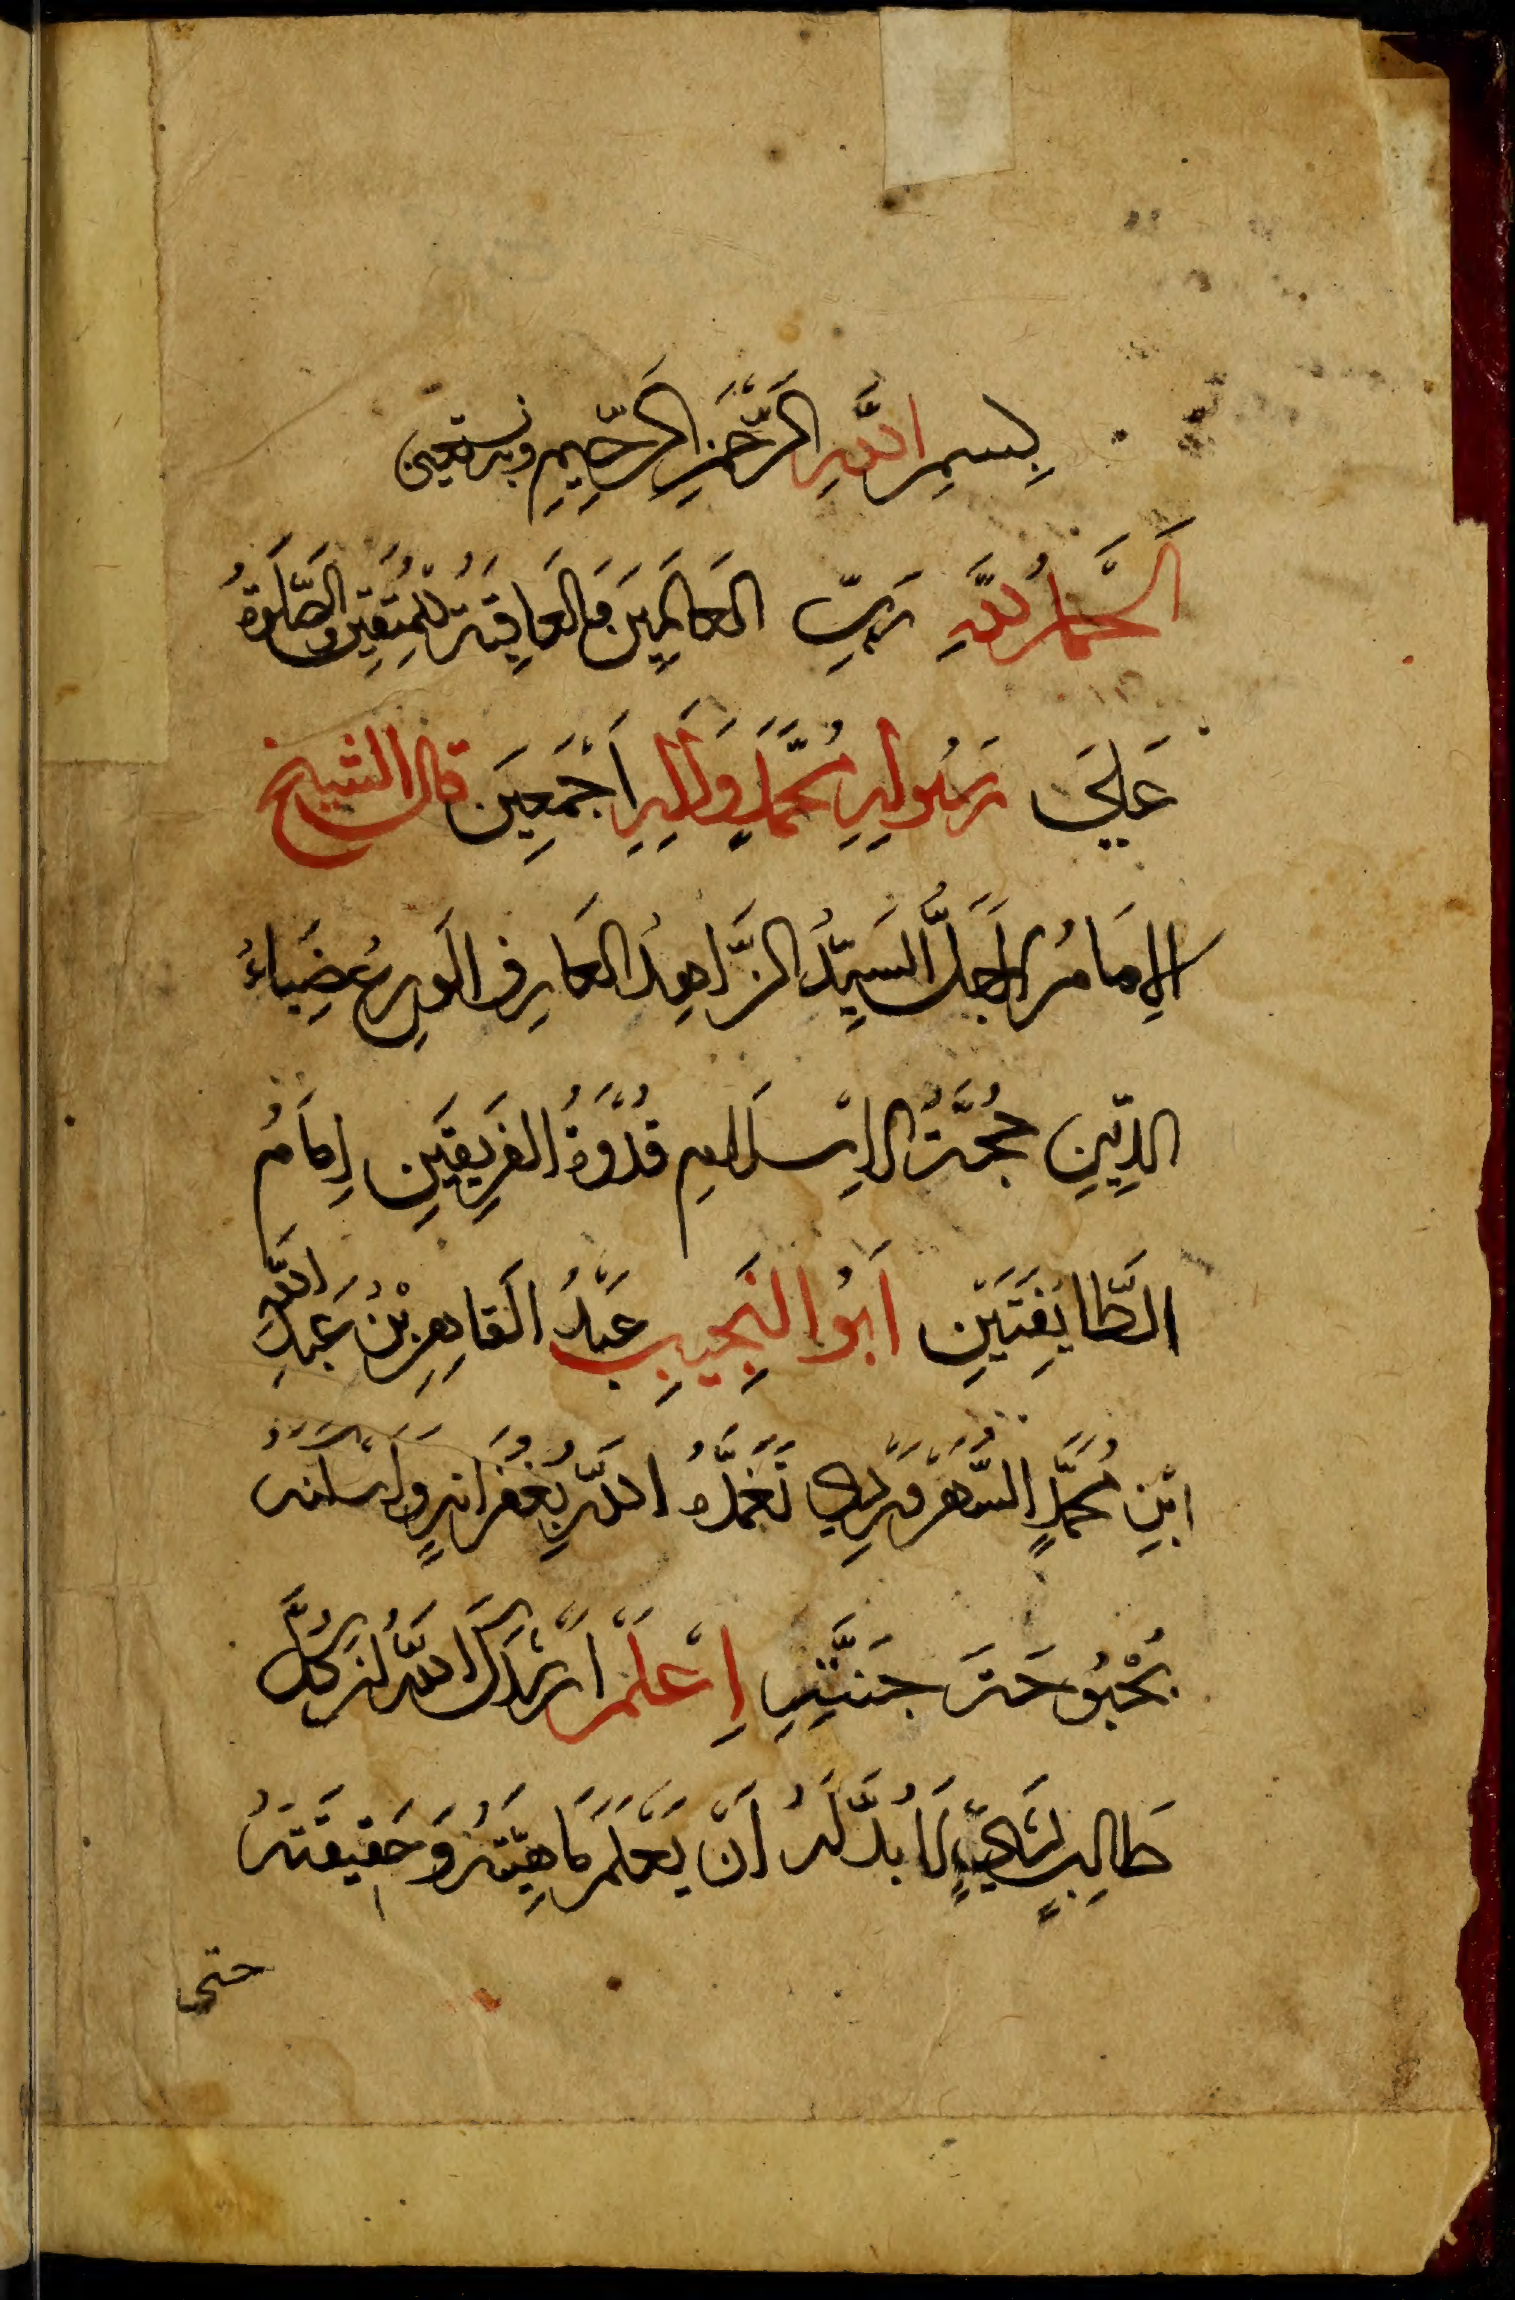 بِسمِ اللَّهِ الرَّحْمَنِ الرَّحِيمِ وبه نستعين
اَلْحَمْدُ لِلَّهِ رَبِّ العَالَمِينَ وَالعَاقِبَةُ لِلْمُتَّقِينَ وَالصَّلَوةُ
عَلَى رَسُولِهِ مُحَمَّدٍ وَآلِهِ اَجْمَعِينَ قال الشيخ
الاِمَامُ الاَجَلُّ السَيِّدُ الزَّاهِدُ العَارِف الوَرِعُ ضِيَاءُ
الدِّينِ حُجَّةُ الاِسْلَامِ قُدْوَةُ الفَرِيقَينِ اِمَامُ
الطَّايِفَتَيْنِ اَبُو النَّجِيبِ عَبْدُ القَاهِرِ بْنُ عَبْدِ اللهِ
ابْنِ مُحَمَّدٍ السُّهْرَوَرْدِي تَغَمَّدَهُ اللَّهُ بِغُفْرَانِهِ وَاَسْكَنَهُ
بُحْبُوحَةَ جَنَّتِهِ اِعْلَمْ اَرْشَدَكَ اللَّهُ اَنَّ كُلَّ
طَالِبٍ لِشَيْءٍ لَابُدَّ لَهُ اَنْ يَعْلَمَ مَاهِيَّتَهُ وَحَقِيقَتَهُ
حتى